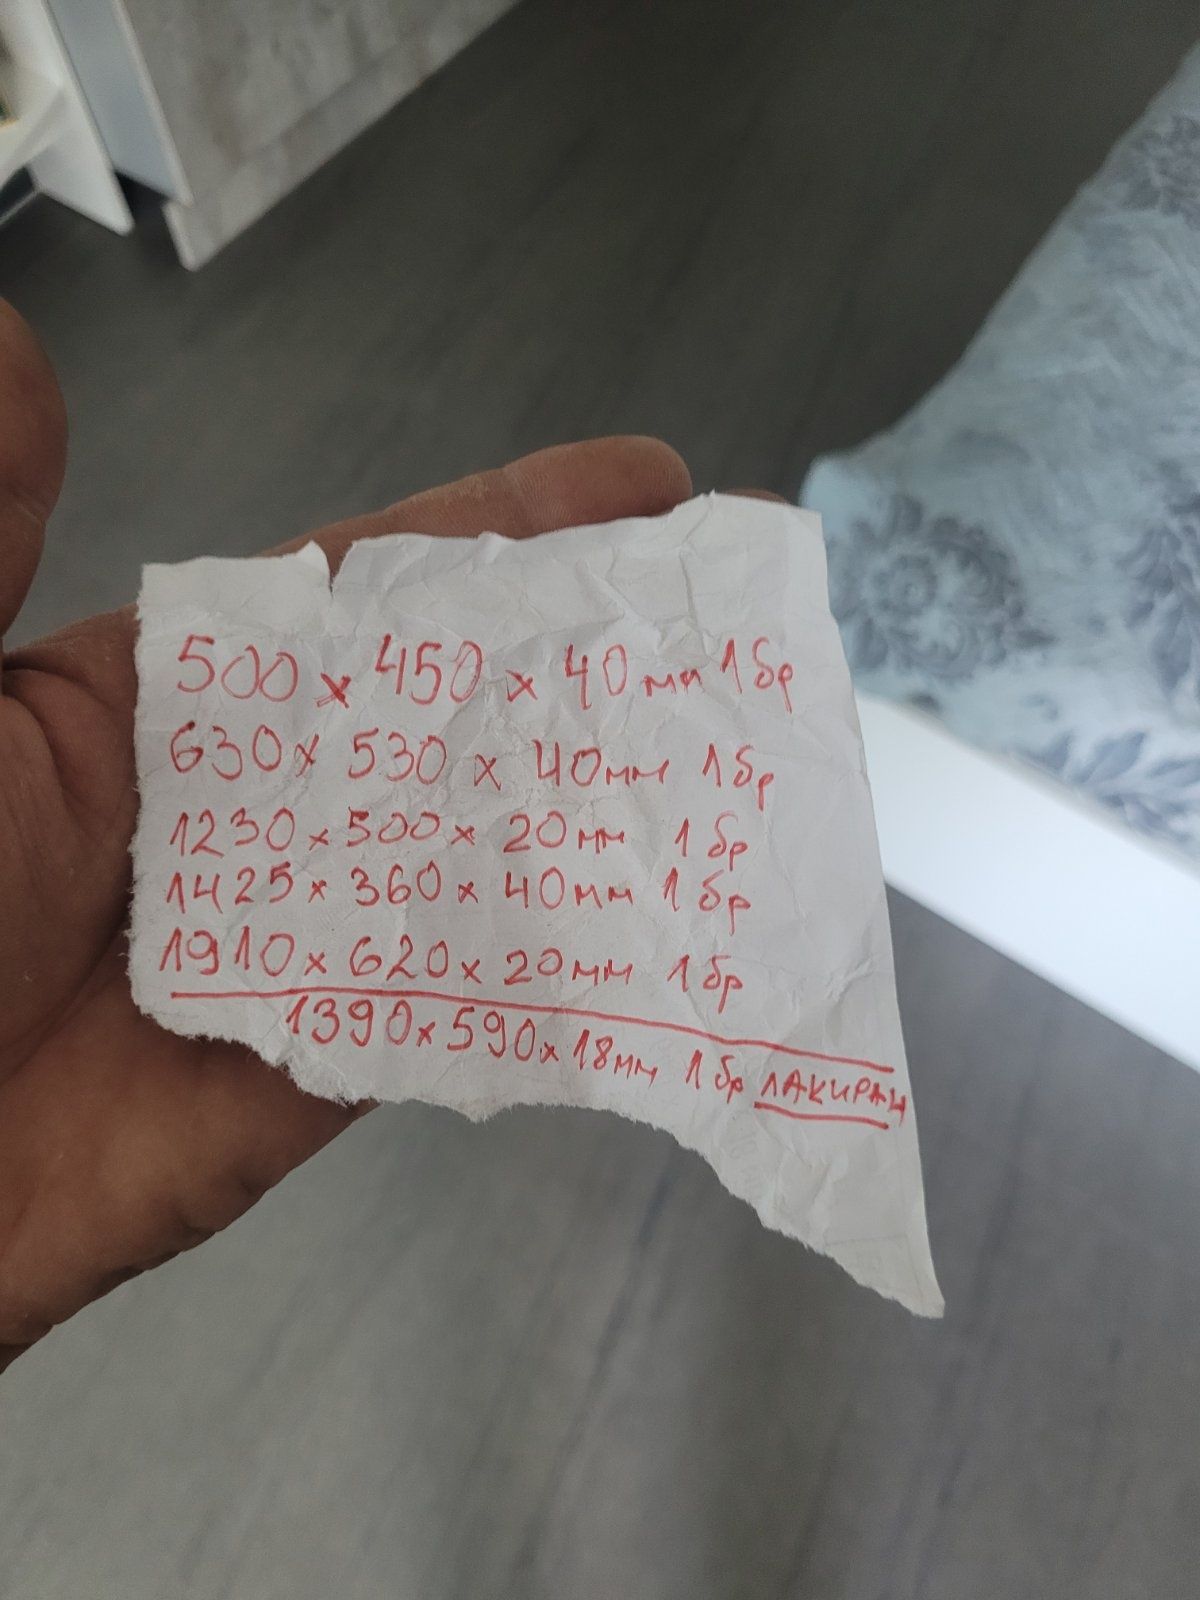 500 x 450 x 40 мм 1 бр
630 x 530 x 40 мм 1 бр
1230 x 500 x 20 мм 1 бр
1425 x 360 x 40 мм 1 бр
1910 x 620 x 20 мм 1 бр
1390 x 590 x 18 мм 1 бр ЛАКИРАН